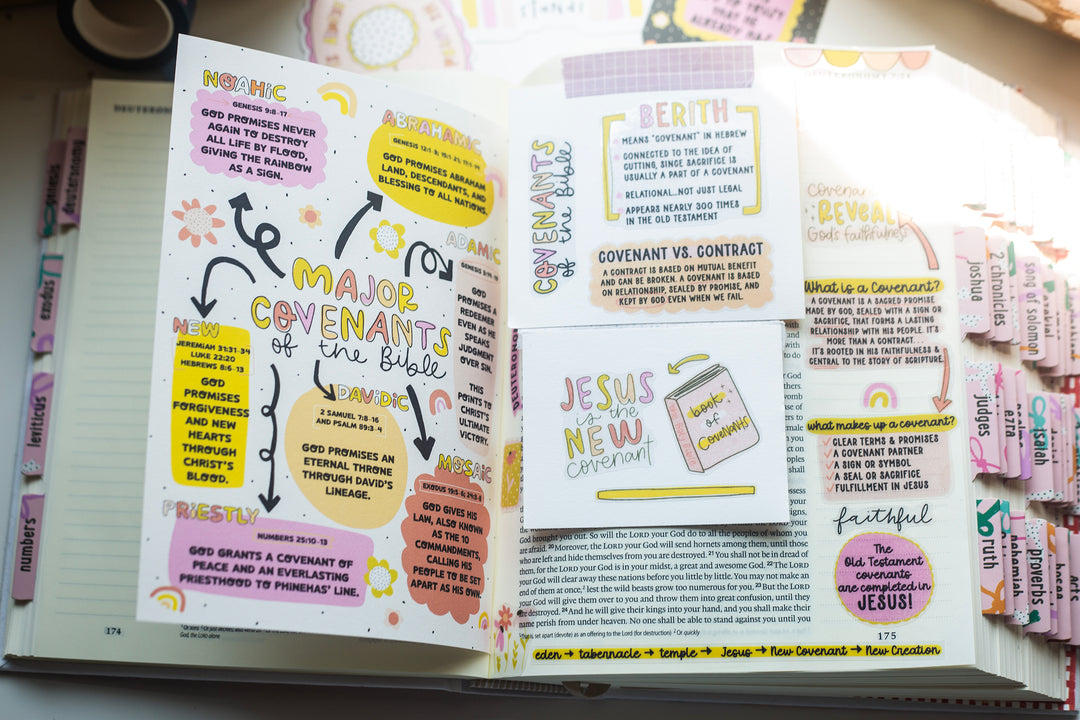 stands
ALREADY HAS
DEUTERONOMY 7:24
DEUTERONO
genesis
deuteronomy
exodus
leviticus
numbers
NOAHIC
GENESIS 9:8-17
GOD PROMISES NEVER
AGAIN TO DESTROY
ALL LIFE BY FLOOD,
GIVING THE RAINBOW
AS A SIGN.
ABRAHAMIC
GOD PROMISES ABRAHAM
LAND, DESCENDANTS, AND
BLESSING TO ALL NATIONS.
ADAMIC
GOD
PROMISES A
REDEEMER
EVEN AS HE
SPEAKS
JUDGMENT
OVER SIN.
THIS
POINTS TO
CHRIST'S
ULTIMATE
VICTORY.
MAJOR
COVENANTS
of the Bible
NEW
JEREMIAH 31:31-34
LUKE 22:20
HEBREWS 8:6-13
GOD
PROMISES
FORGIVENESS
AND NEW
HEARTS
THROUGH
CHRIST'S
BLOOD.
DAVIDIC
2 SAMUEL 7:8-16
AND PSALM 89:3-4
GOD PROMISES AN
ETERNAL THRONE
THROUGH DAVID'S
LINEAGE.
MOSAIC
EXODUS 19:5-6; 24:3-8
GOD GIVES HIS
LAW, ALSO KNOWN
AS THE 10
COMMANDMENTS,
CALLING HIS
PEOPLE TO BE SET
APART AS HIS OWN.
PRIESTLY
NUMBERS 25:10-13
GOD GRANTS A COVENANT OF
PEACE AND AN EVERLASTING
PRIESTHOOD TO PHINEHAS' LINE.
174
God, the LORD alone
COVENANTS
of the Bible
BERITH
MEANS "COVENANT" IN HEBREW
CONNECTED TO THE IDEA OF
CUTTING, SINCE SACRIFICE IS
USUALLY A PART OF A COVENANT
RELATIONAL...NOT JUST LEGAL
APPEARS NEARLY 300 TIMES
IN THE OLD TESTAMENT
COVENANT VS. CONTRACT
A CONTRACT IS BASED ON MUTUAL BENEFIT
AND CAN BE BROKEN. A COVENANT IS BASED
ON RELATIONSHIP, SEALED BY PROMISE, AND
KEPT BY GOD EVEN WHEN WE FAIL.
JESUS
is the
NEW
covenant
book
of
COVENANTS
DEUTERONO
brought you out. So will the LORD your God do to all the peoples of whom you
are afraid. 20 Moreover, the LORD your God will send hornets among them, until those
who are left and hide themselves from you are destroyed. 21 You shall not be in dread of
them, for the LORD your God is in your midst, a great and awesome God. 22 The LORD
your God will clear away these nations before you little by little. You may not make an
end of them at once, lest the wild beasts grow too numerous for you. 23 But the LORD
your God will give them over to you and throw them into great confusion, until they
are destroyed. 24 And he will give their kings into your hand, and you shall make their
name perish from under heaven. No one shall be able to stand against you until you
set apart (devote) as an offering to the Lord (for destruction) 2 Or quickly
Covenant
REVEAL
God's faithfulness
What is a Covenant?
A COVENANT IS A SACRED PROMISE
MADE BY GOD, SEALED WITH A SIGN OR
SACRIFICE, THAT FORMS A LASTING
RELATIONSHIP WITH HIS PEOPLE. IT'S
MORE THAN A CONTRACT...
IT'S ROOTED IN HIS FAITHFULNESS &
CENTRAL TO THE STORY OF SCRIPTURE.
what makes up a covenant?
CLEAR TERMS & PROMISES
A COVENANT PARTNER
A SIGN OR SYMBOL
A SEAL OR SACRIFICE
FULFILLMENT IN JESUS
faithful
The
Old Testament
covenants
are completed in
JESUS!
175
eden → tabernacle → temple → Jesus → New Covenant → New Creation
joshua
2 chronicles
song of solomon
judges
ezra
isaiah
ruth
nehemiah
proverbs
hosea